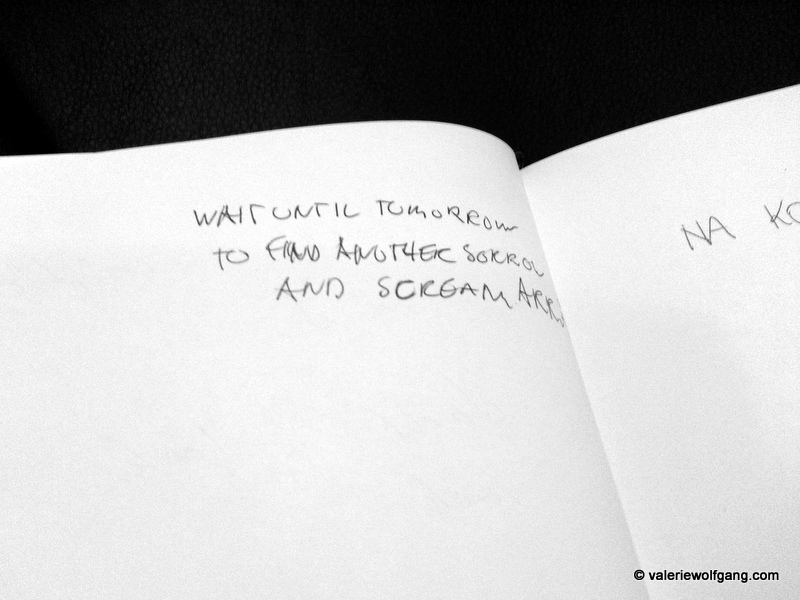 WAIT UNTIL TOMORROW
TO FIND ANOTHER
AND SCREAM
NA
© valeriewolfgang.com